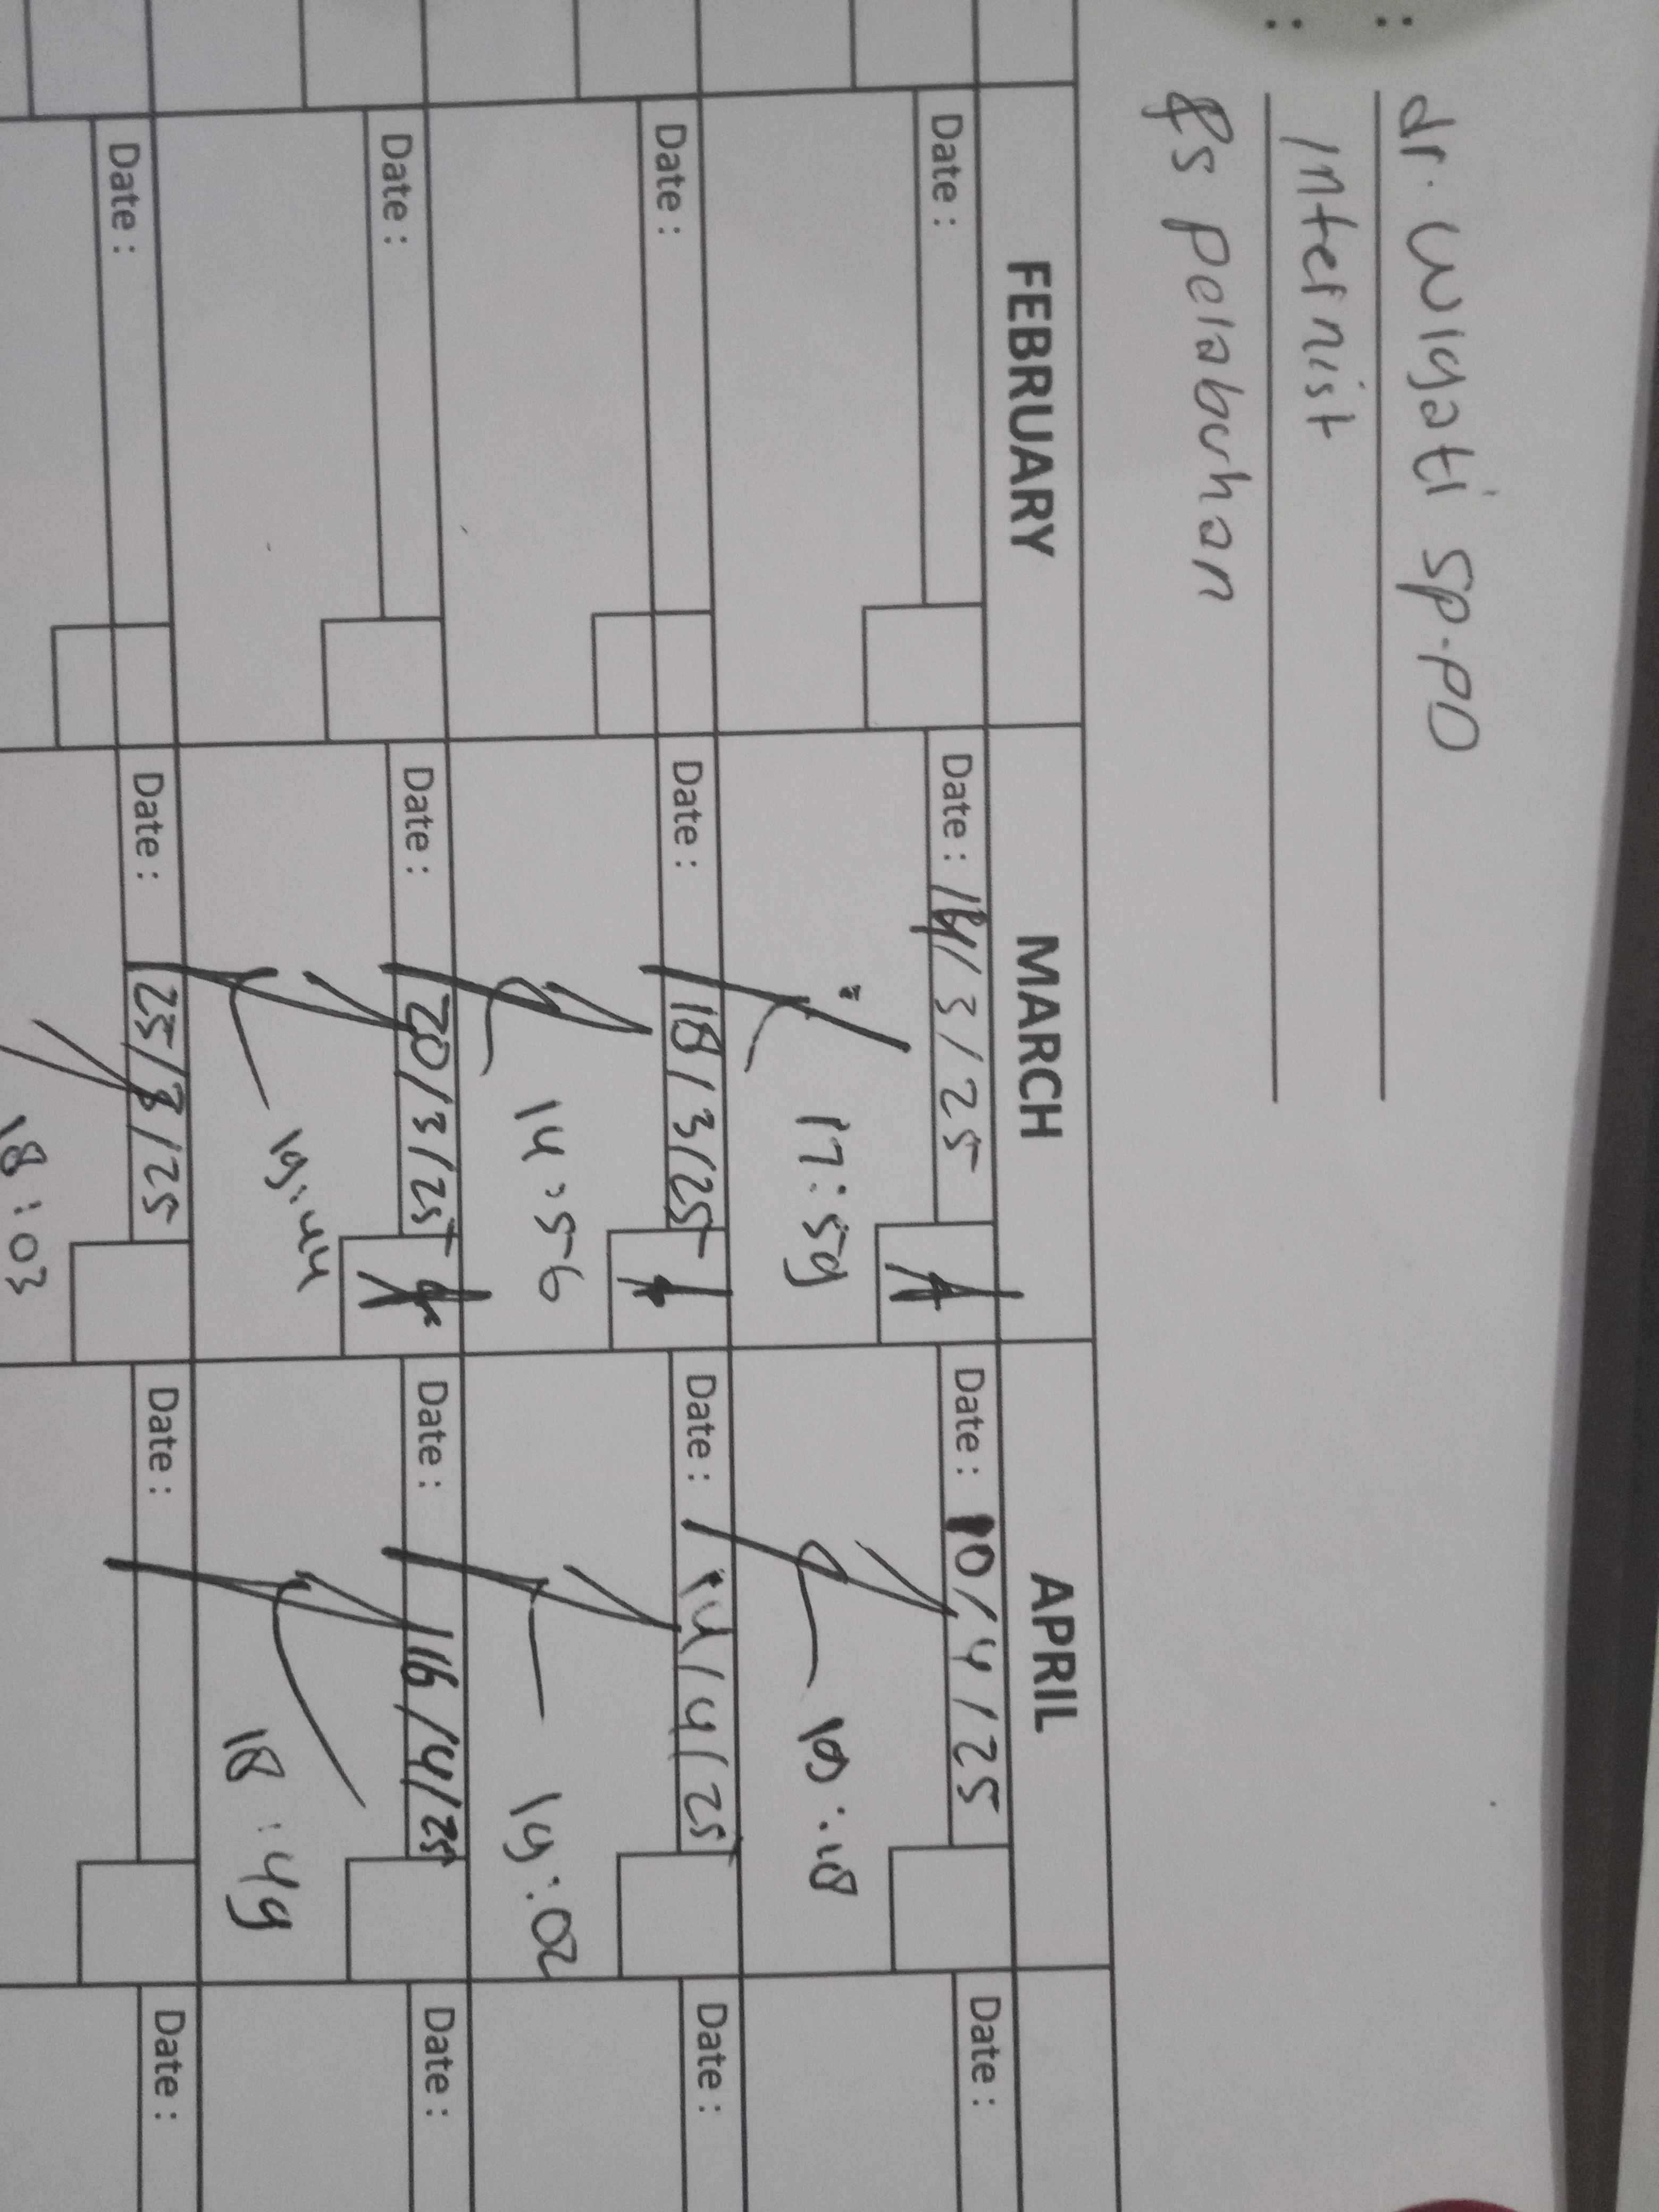 : dr. Wigati Sp.PD
: Internist
Rs pelabuhan
FEBRUARY MARCH APRIL
Date : Date : 14/3/25 Date : 10/4/25 Date :
17:59 19:48
Date : Date : 18/3/25 Date : 14/4/25 Date :
14:56 19:02
Date : Date : 20/3/25 Date : 16/4/25 Date :
19:44 18:49
Date : Date : 25/3/25 Date : Date :
18:03